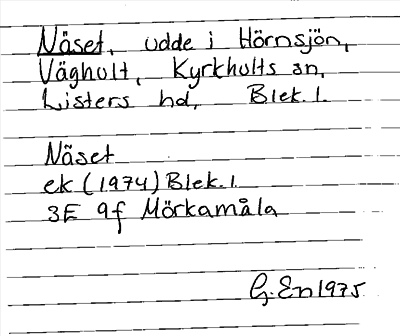 Näset, udde i Hörnsjön,
Väghult, Kyrkhults sn,
Listers hd, Blek. l.
Näset
ek (1974) Blek. l.
3E 9f Mörkamåla
G. En 1975